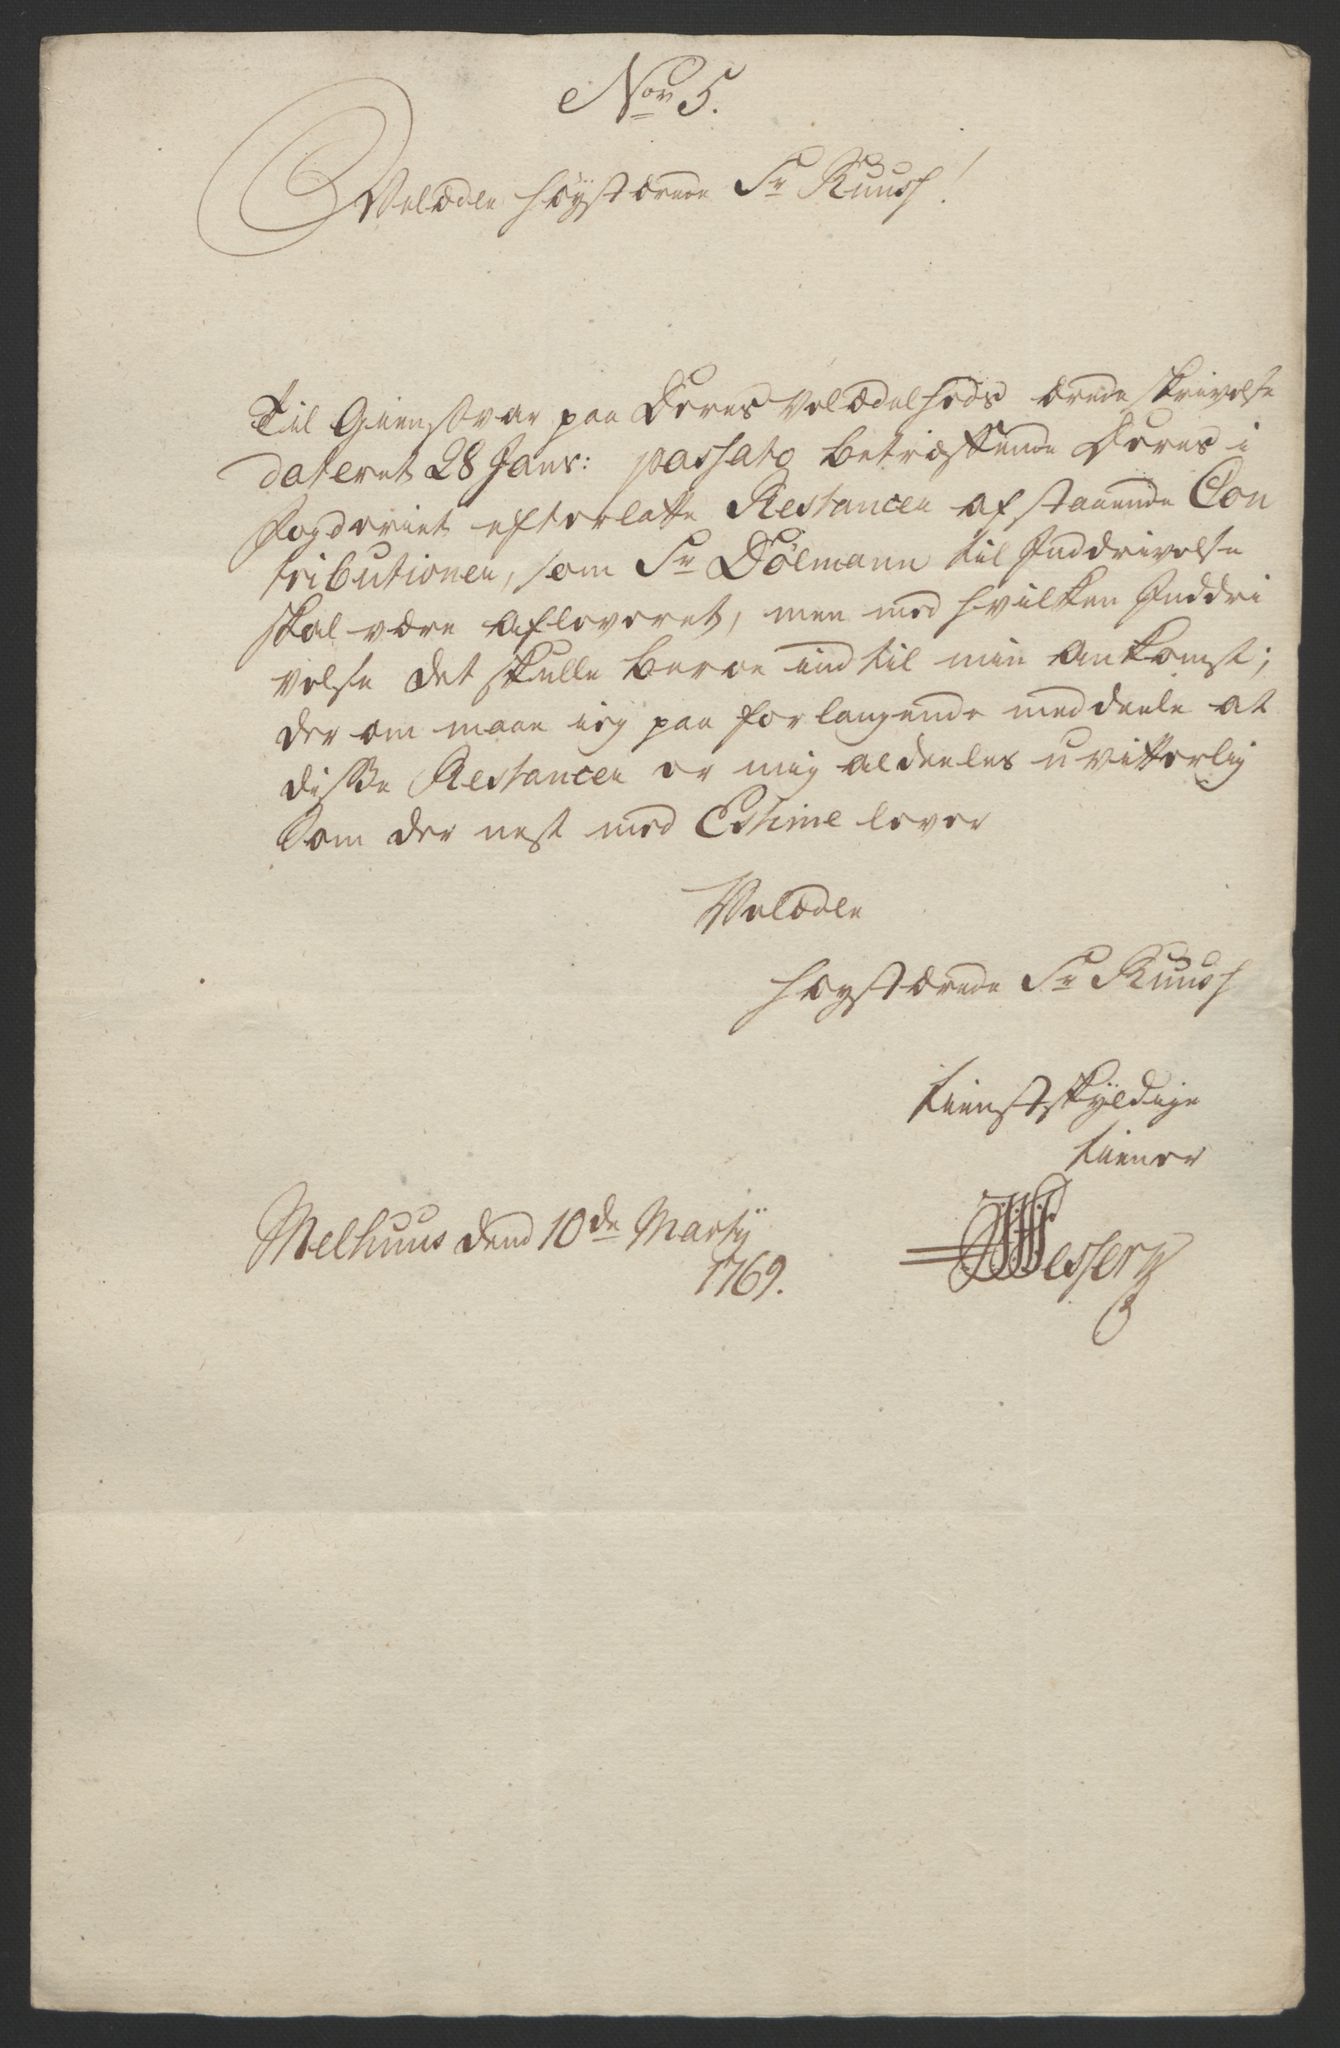 Nor 5.
Velædle Høystærede Sr Kuusch!
Til Giensvar paa Deres Velædelheds ærede skrivelse
dateret 28 Janr: passato betræffende Deres i
Fogderiet efterlatte Restancer af staaende Con
tributioner, som Sr Dølmann til Inddrivelse
skal være afleveret, men med hvilken Inddri
velse det skulle beroe indtil min ankomst;
der om maae ieg paa forlangende meddeele at
disse Restancer er mig aldeeles uvitterlig
Som der nest med Estime lever
Velædle
Høystærede Sr Kuusch
tienstskyldige
tiener
Melhuus dend 10de Martij
1769.